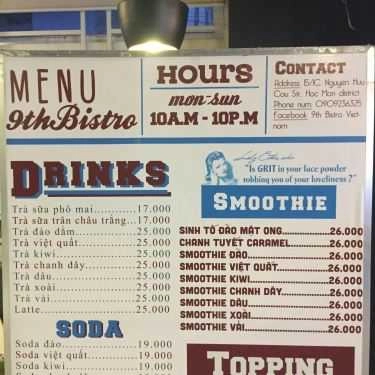 MENU
9th Bistro
HOURS
mon-sun
10A.M - 10P.M
CONTACT
Address: 15/1C, Nguyen Huu
Cau Str, Hoc Mon district
Phone num: 01909236325
Facebook: 9th Bistro Viet-
nam
DRINKS
Trà sữa phô mai...17.000
Trà sữa trân châu trắng...17.000
Trà đào dầm...25.000
Trà việt quất...25.000
Trà kiwi...25.000
Trà chanh dây...25.000
Trà dâu...25.000
Trà xoài...25.000
Trà vải...25.000
Latte...25.000
SODA
Soda đào...19.000
Soda việt quất...19.000
Soda kiwi...19.000
"Is GRIT in your face powder
robbing you of your loveliness?"
SMOOTHIE
SINH TỐ ĐÀO MẬT ONG...26.000
CHANH TUYẾT CARAMEL...26.000
SMOOTHIE ĐÀO...26.000
SMOOTHIE VIỆT QUẤT...26.000
SMOOTHIE KIWI...26.000
SMOOTHIE CHANH DÂY...26.000
SMOOTHIE DÂU...26.000
SMOOTHIE XOÀI...26.000
SMOOTHIE VẢI...26.000
TOPPING